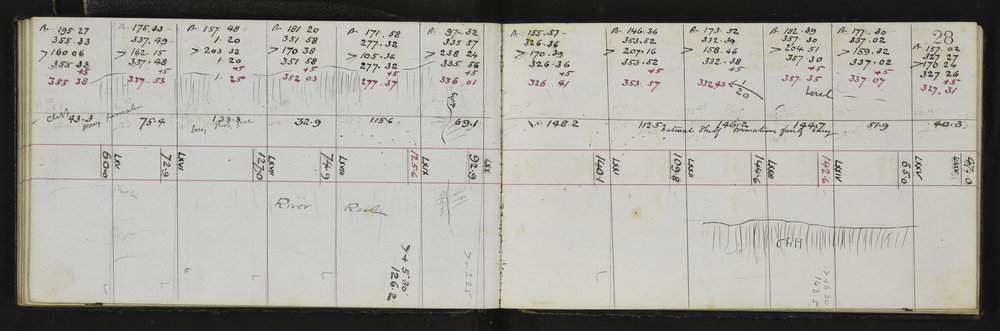 A- 195·27
355·33
>160·06
355·33
+5
355 38
A- 175·33-
337·49
> 162·15
337·48
+5
337·53
A- 157 48
1·20
> 203 32
1·20
+5
1·25
A- 181 20
351 58
>170 38
351 58
+5
352 03
A- 171·58
277·32
>105·34
277·32
+5
277·37
A- 97-32
335 57
> 238 24
335 56
+5
336·01
A- 155·57-
326·36
>170·39
326·36
+5
326 41
A- 146·36
353·52
> 207·16
353·52
+5
353·57
A- 173·52
332·39
> 158·46
332·38
+5
332,43
1/20
A- 152 39
357 30
>204·51
357·30
+5
357 35
Level
A- 177·30
337·02
>159·32
337·02
+5
337 07
28
A- 157 02
327 27
>170 24
327 26
+5
327,31
43.3
Formation
75·4
133·3
32·9
115·6
69·1
148·2
112·5
146·2
144·7
Natural Formation
51·9
40·3
LXV
60·0
72·9
LXVI
127·0
LXVII
74·9
LXVIII
125·6
LXX
92·9
140·1
LXXI
109·8
LXXII
144·6
LXXIII
142·6
LXXIV
65·0
LXXV
47·0
River Road
Cliff
>+5·30'
126·2
>-3·25
>+6·30
143·5
L
L
L
L